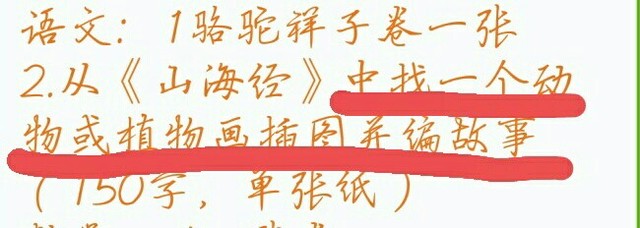 语文：1骆驼祥子卷一张
2.从《山海经》中找一个动
物或植物画插图并编故事
（150字，单张纸）